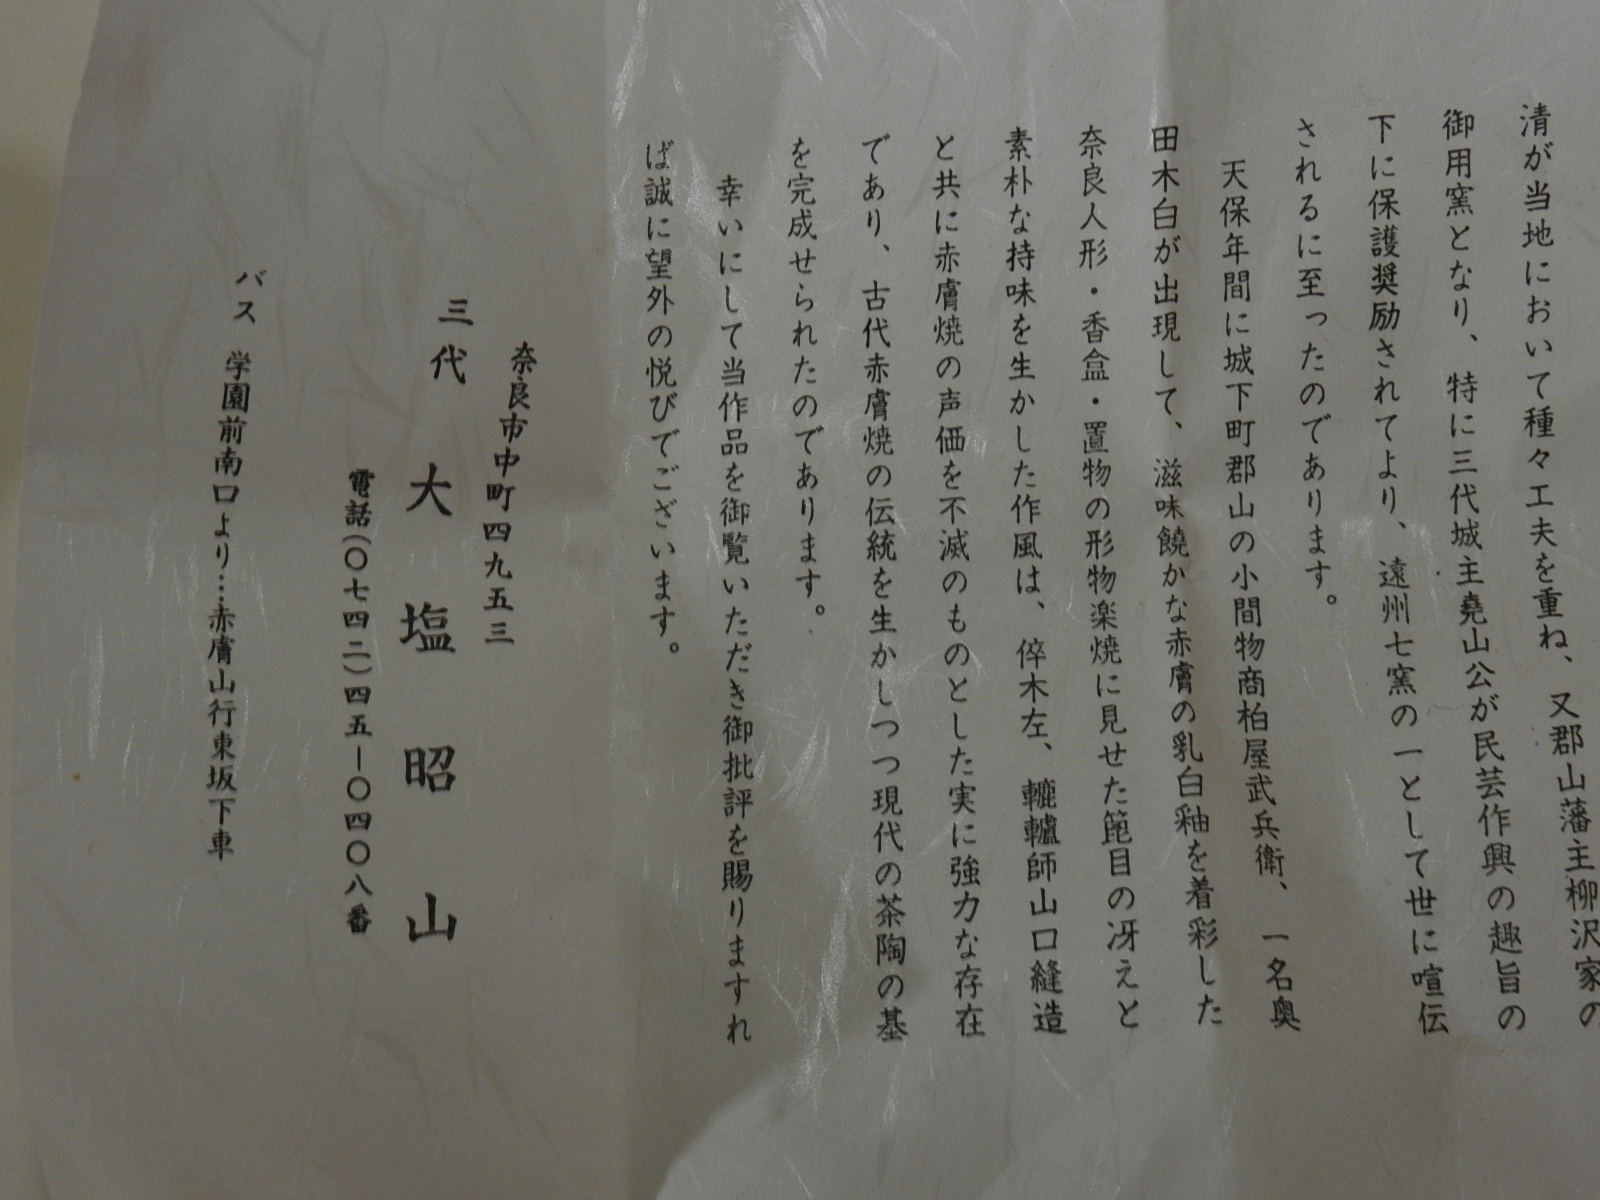 清が当地において種々工夫を重ね、又郡山藩主柳沢家の
御用窯となり、特に三代城主堯山公が民芸作興の趣旨の
下に保護奨励されてより、遠州七窯の一として世に喧伝
されるに至ったのであります。
天保年間に城下町郡山の小間物商柏屋武兵衛、一名奥
田木白が出現して、滋味饒かな赤膚の乳白釉を着彩した
奈良人形・香盒・置物の形物楽焼に見せた箆目の冴えと
素朴な持味を生かした作風は、倅木左、轆轤師山口縫造
と共に赤膚焼の声価を不滅のものとした実に強力な存在
であり、古代赤膚焼の伝統を生かしつつ現代の茶陶の基
を完成せられたのであります。
幸いにして当作品を御覧いただき御批評を賜りますれ
ば誠に望外の悦びでございます。
奈良市中町四九五三
三代 大塩昭山
電話(〇七四二)四五ー〇四〇八番
バス 学園前南口より…赤膚山行東坂下車